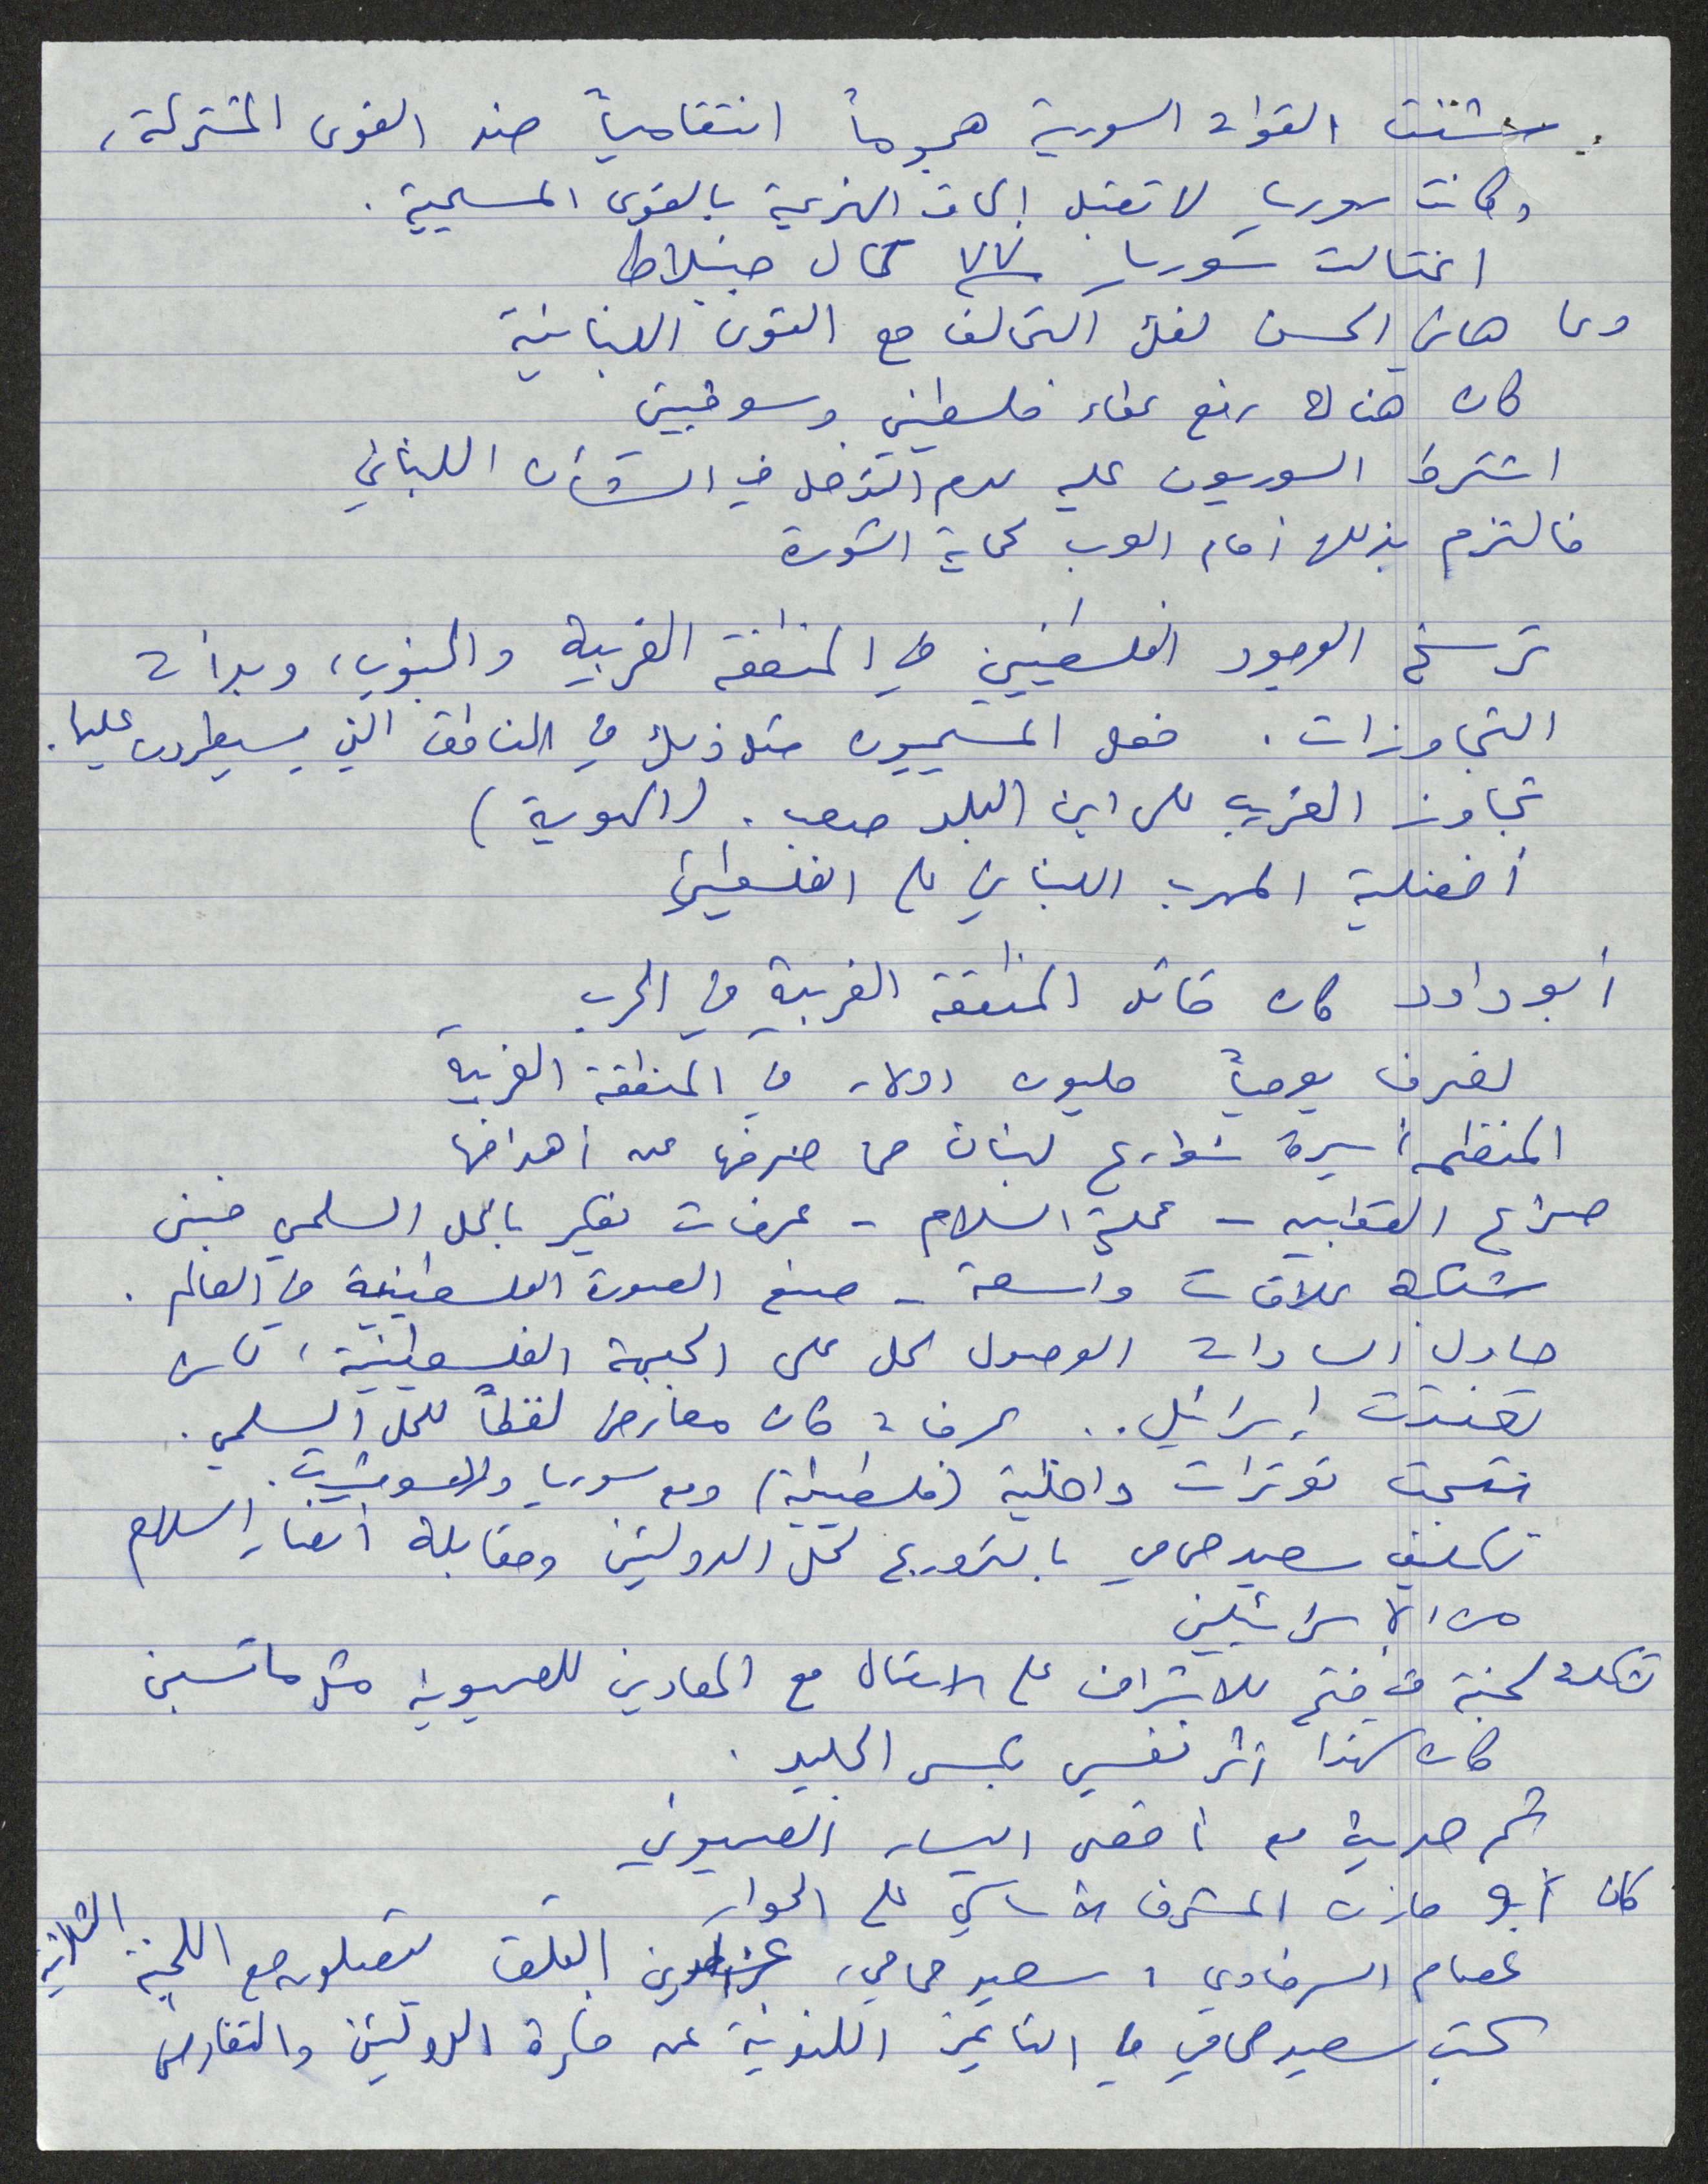 شنت القوات السورية هجوماً انتقامياً ضد القوى المشتركة،
وكانت سوريا لا تقبل إلحاق الهزيمة بالقوى المسيحية.
اغتالت سوريا ٧٧ كمال جنبلاط
دعا هاني الحسن لفك التحالف مع القوى اللبنانية
كان هناك رفع غطاء فلسطيني وسوفييتي
اشترط السوريون عليه عدم التدخل في الشأن اللبناني
فالتزم بذلك أمام العرب لحماية الثورة
ترسخ الوجود الفلسطيني في المنطقة الغربية والجنوب، وبدأت
التجاوزات. فعل المسيحيون مثل ذلك في المناطق التي يسيطرون عليها.
تجاوز الغريب على ابن البلد صعب. (الهوية)
أفضلية المهرب اللبناني على الفلسطيني
أبو داود كان قائد المنطقة الغربية في الحرب
لصرف يومياً مليون دولار في المنطقة الغربية
المنظمة أسيرة شوارع لبنان مما صرفها عن أهدافها
صراع القطبين - عملية السلام - عرفات يفكر بالحل السلمي فبنى
شبكة علاقات واسعة - صنع الصورة الفلسطينية في العالم.
حاول السادات الوصول لحل على الجبهة الفلسطينية، لكن
تعنتت إسرائيل.. عرفات كان معارض لفظاً للحل السلمي.
نتجت توترات داخلية (فلسطينية) ومع سوريا والسوفييت.
تكليف سعيد حمامي بالترويج لحل الدولتين ومقابلة أنصار السلام
من الإسرائيليين
تشكلت لجنة في فتح للإشراف على الاتصال مع المعادين للصهيونية مثل ماتسبين
كان لهذا أثر نفسي بكسر الجليد.
ثم مع أقصى اليسار الصهيوني
كان أبو مازن المشرف الأساسي على الحوار
عصام السرطاوي، سعيد حمامي، عزالدين القلق يتصلون مع اللجنة الثلاثية
كتب سعيد حمامي في التايمز اللندنية عن فكرة الدولتين والتعايش